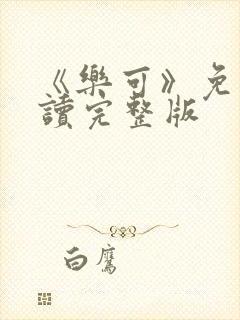 《樂可》免
讀完整版
白鷹